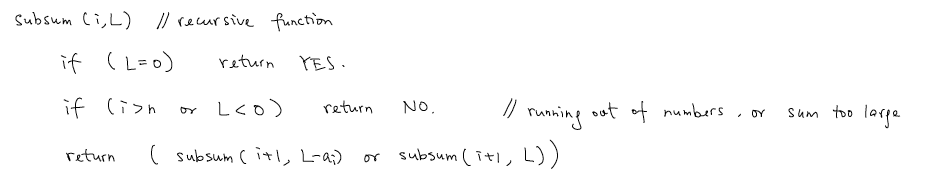 subsum (i,L) // recursive function
if (L=0) return YES.
if (i>n or L<0) return NO. // running out of numbers, or sum too large
return ( subsum(i+1, L-aᵢ) or subsum(i+1, L))